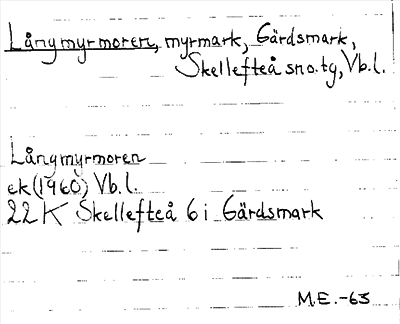 Långmyrmoren, myrmark, Gärdsmark,
Skellefteå sno.tg, Vb.l.
Långmyrmoren
ek (1960) Vb.l.
22 K Skellefteå 6 i Gärdsmark
M.E.-63